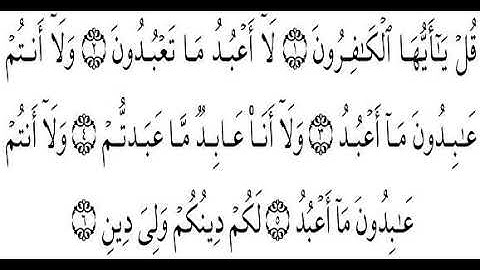 قُلْ يَـٰٓأَيُّهَا ٱلْكَـٰفِرُونَ ۝١ لَآ أَعْبُدُ مَا تَعْبُدُونَ ۝٢ وَلَآ أَنتُمْ
عَـٰبِدُونَ مَآ أَعْبُدُ ۝٣ وَلَآ أَنَا۠ عَابِدٌ مَّا عَبَدتُّمْ ۝٤ وَلَآ أَنتُمْ
عَـٰبِدُونَ مَآ أَعْبُدُ ۝٥ لَكُمْ دِينُكُمْ وَلِىَ دِينِ ۝٦